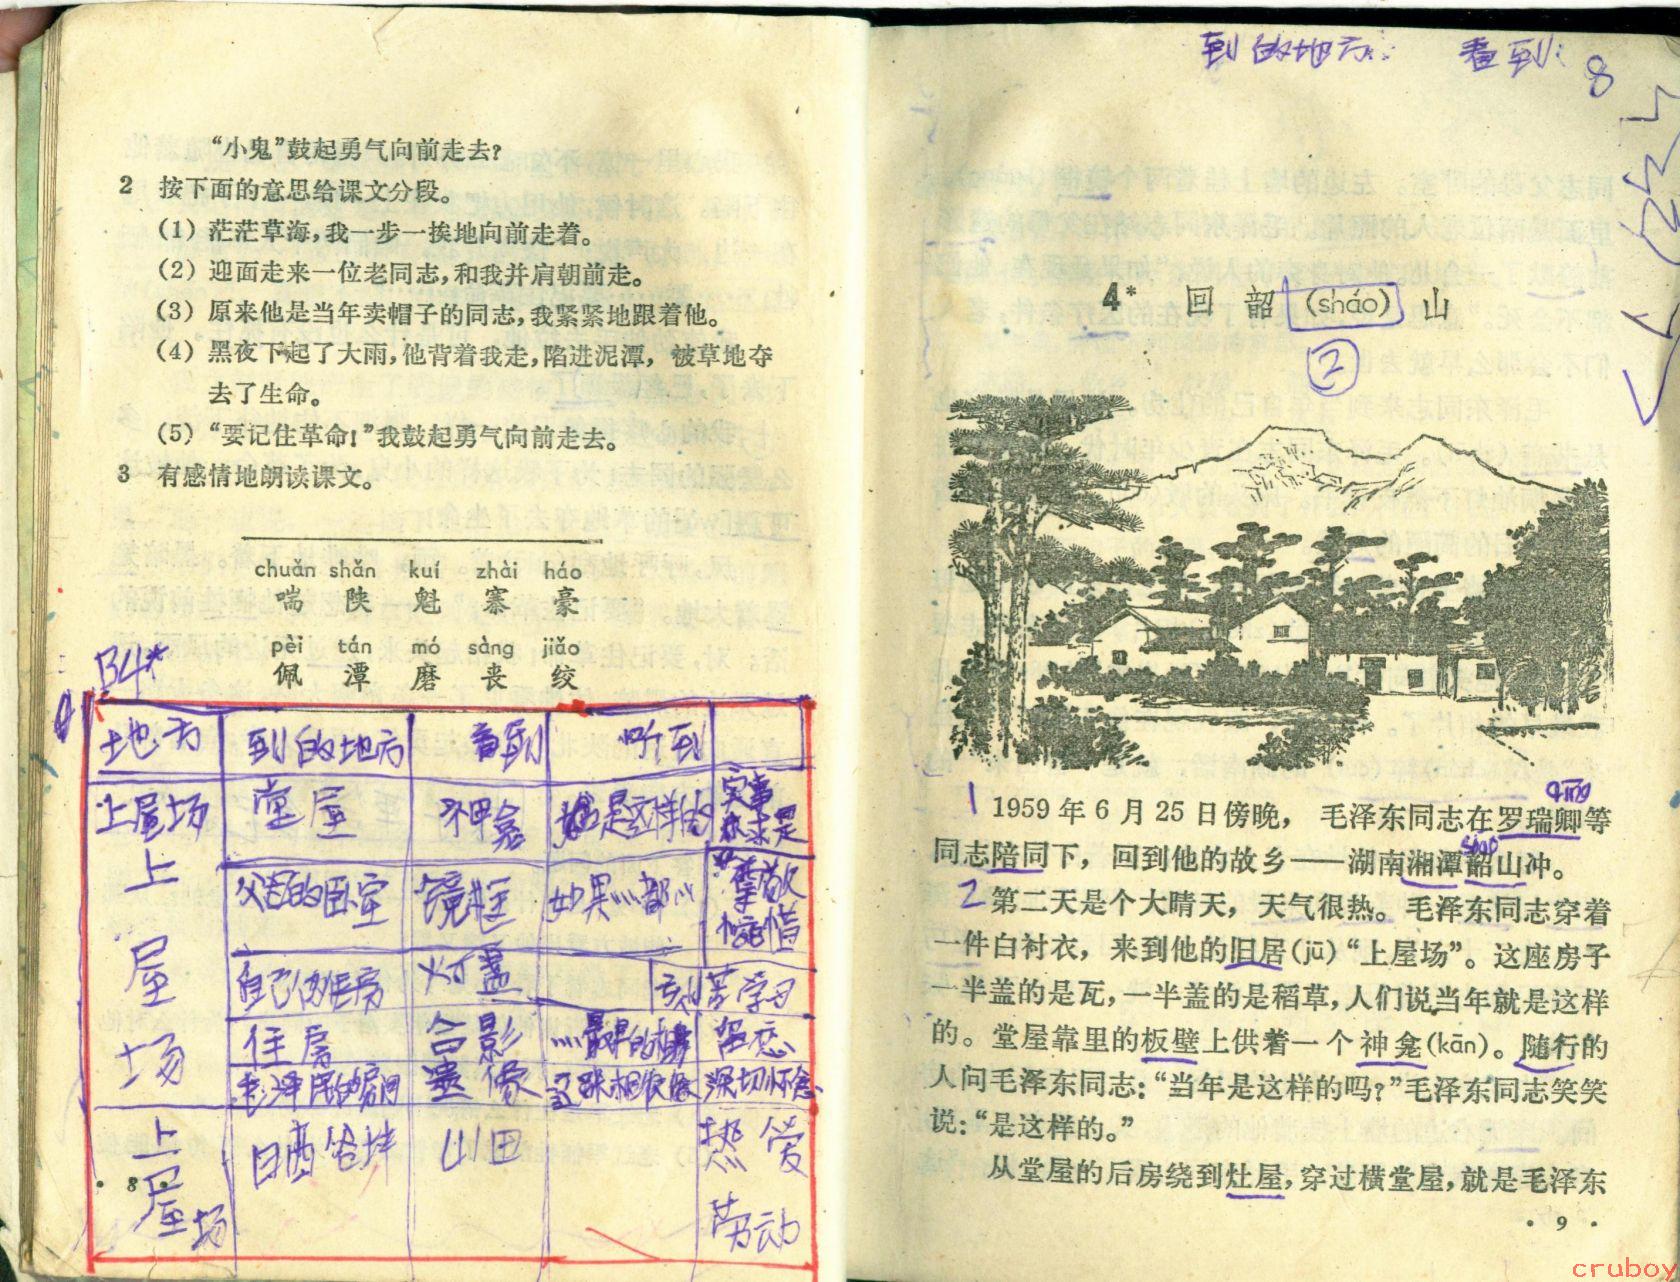 “小鬼”鼓起勇气向前走去?
2 按下面的意思给课文分段。
(1) 茫茫草海,我一步一挨地向前走着。
(2) 迎面走来一位老同志,和我并肩朝前走。
(3) 原来他是当年卖帽子的同志,我紧紧地跟着他。
(4) 黑夜下起了大雨,他背着我走,陷进泥潭, 被草地夺
去了生命。
(5) “要记住革命!”我鼓起勇气向前走去。
3 有感情地朗读课文。
chuǎn shǎn kuí zhài háo
喘 陕 魁 寨 豪
pèi tán mó sàng jiǎo
佩 潭 磨 丧 绞
B4*
地方 到的地方 看到 听到
上屋场 堂屋 是这样的 实事求是
父母的卧室 镜框 如果 都
上屋场 自己的住房 灯盏 刻苦学习
住房 合影
遗像 深切怀念
上屋场 山田 热爱劳动
• 8 •
到的地方: 看到:
8
4* 回 韶 (sháo) 山
2
1 1959 年 6 月 25 日傍晚, 毛泽东同志在罗瑞卿等
同志陪同下, 回到他的故乡——湖南湘潭韶山冲。
2 第二天是个大晴天, 天气很热。毛泽东同志穿着
一件白衬衣, 来到他的旧居(jū) “上屋场”。这座房子
一半盖的是瓦, 一半盖的是稻草, 人们说当年就是这样
的。堂屋靠里的板壁上供着一个神龛(kān)。随行的
人问毛泽东同志: “当年是这样的吗?” 毛泽东同志笑笑
说: “是这样的。”
从堂屋的后房绕到灶屋, 穿过横堂屋, 就是毛泽东
• 9 •
cruboy